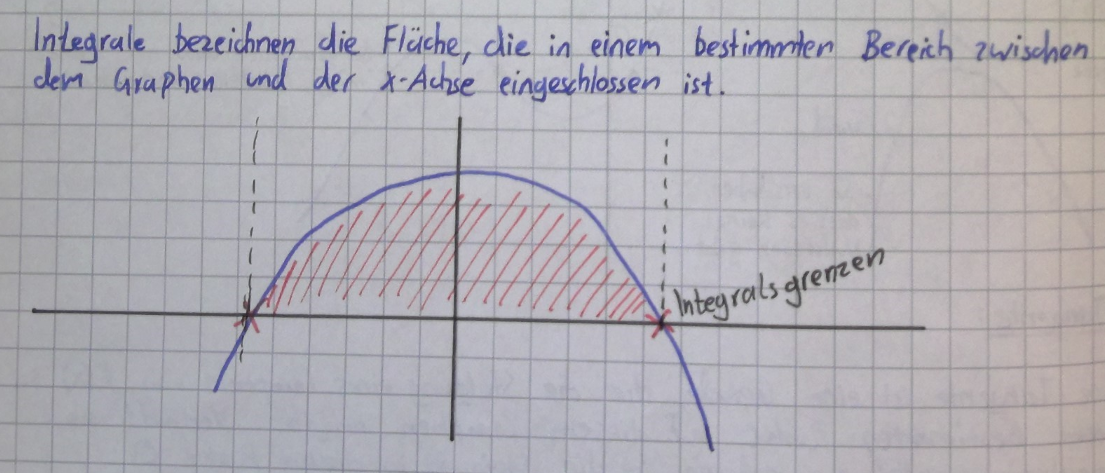 Integrale bezeichnen die Fläche, die in einem bestimmten Bereich zwischen
dem Graphen und der x-Achse eingeschlossen ist.
Integralsgrenzen